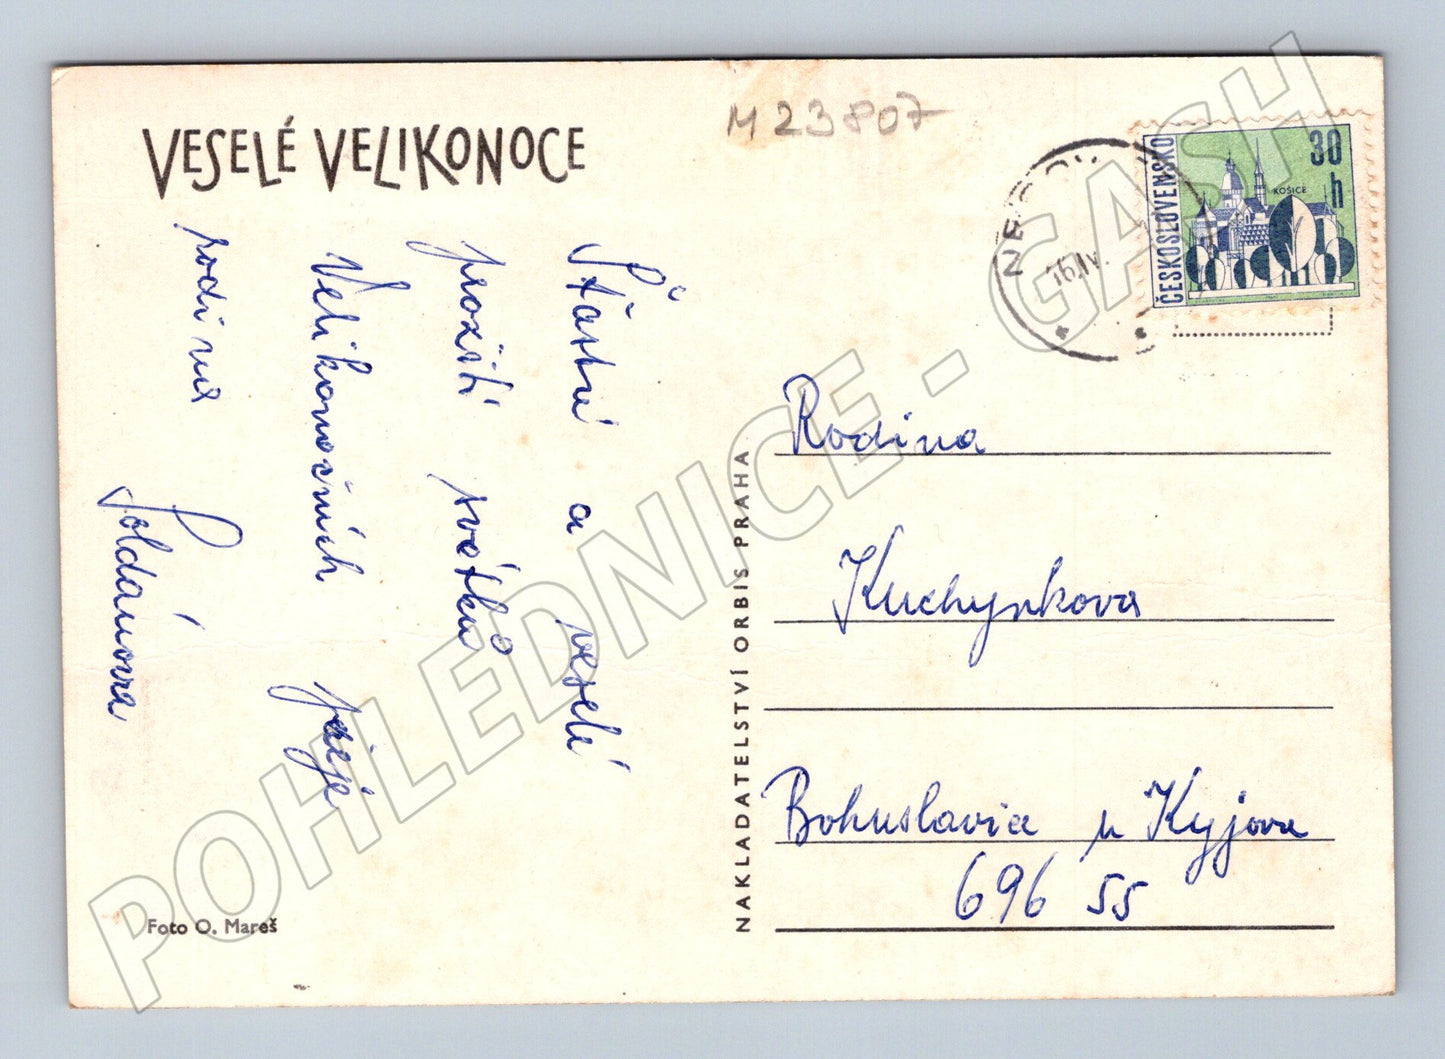 VESELÉ VELIKONOCE
M 23807
ČESKOSLOVENSKO
30 h
KOŠICE
16.IV.
Šťastné a veselé
prožití svátků
Velikonočních přeje
rodina
Soldánova
NAKLADATELSTVÍ ORBIS PRAHA
Rodina
Kuchyňkova
Bohuslavice u Kyjova
696 55
Foto O. Mareš
POHLEDNICE - GASH